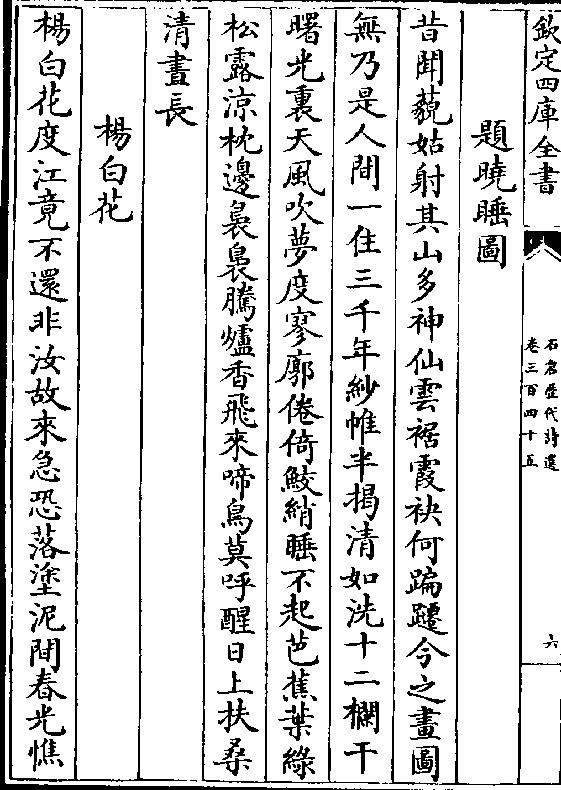 欽定四庫全書
石倉歷代詩選
卷三百四十五
六
題曉睡圖
昔聞藐姑射其山多神仙雲裾霞袂何蹁躚今之畫圖
無乃是人間一住三千年紗帷半揭清如洗十二欄干
曙光裏天風吹夢度寥廓倦倚鮫綃睡不起芭蕉葉綠
松露涼枕邊裊裊騰爐香飛來啼鳥莫呼醒日上扶桑
清晝長
楊白花
楊白花度江竟不還非汝故來急恐落塗泥間春光憔